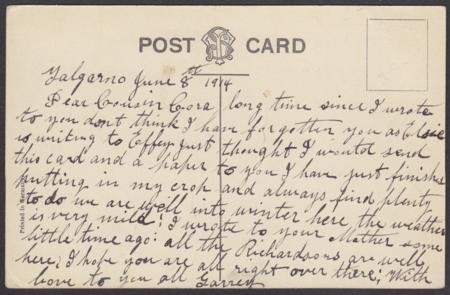 POST CARD
Talgarno June 8th 1914
Dear Cousin Cora long time since I wrote
to you dont think I have forgotten you as Elsie
is writing to Effey just thought I would send
this card and a paper to you I have just finished
putting in my crop and always find plenty
to do we are well into winter here the weather
is very mild; I wrote to your Mother some
little time ago: all the Richardsons are well
here; I hope you are all right over there; With
love to you all Garrey
Printed in